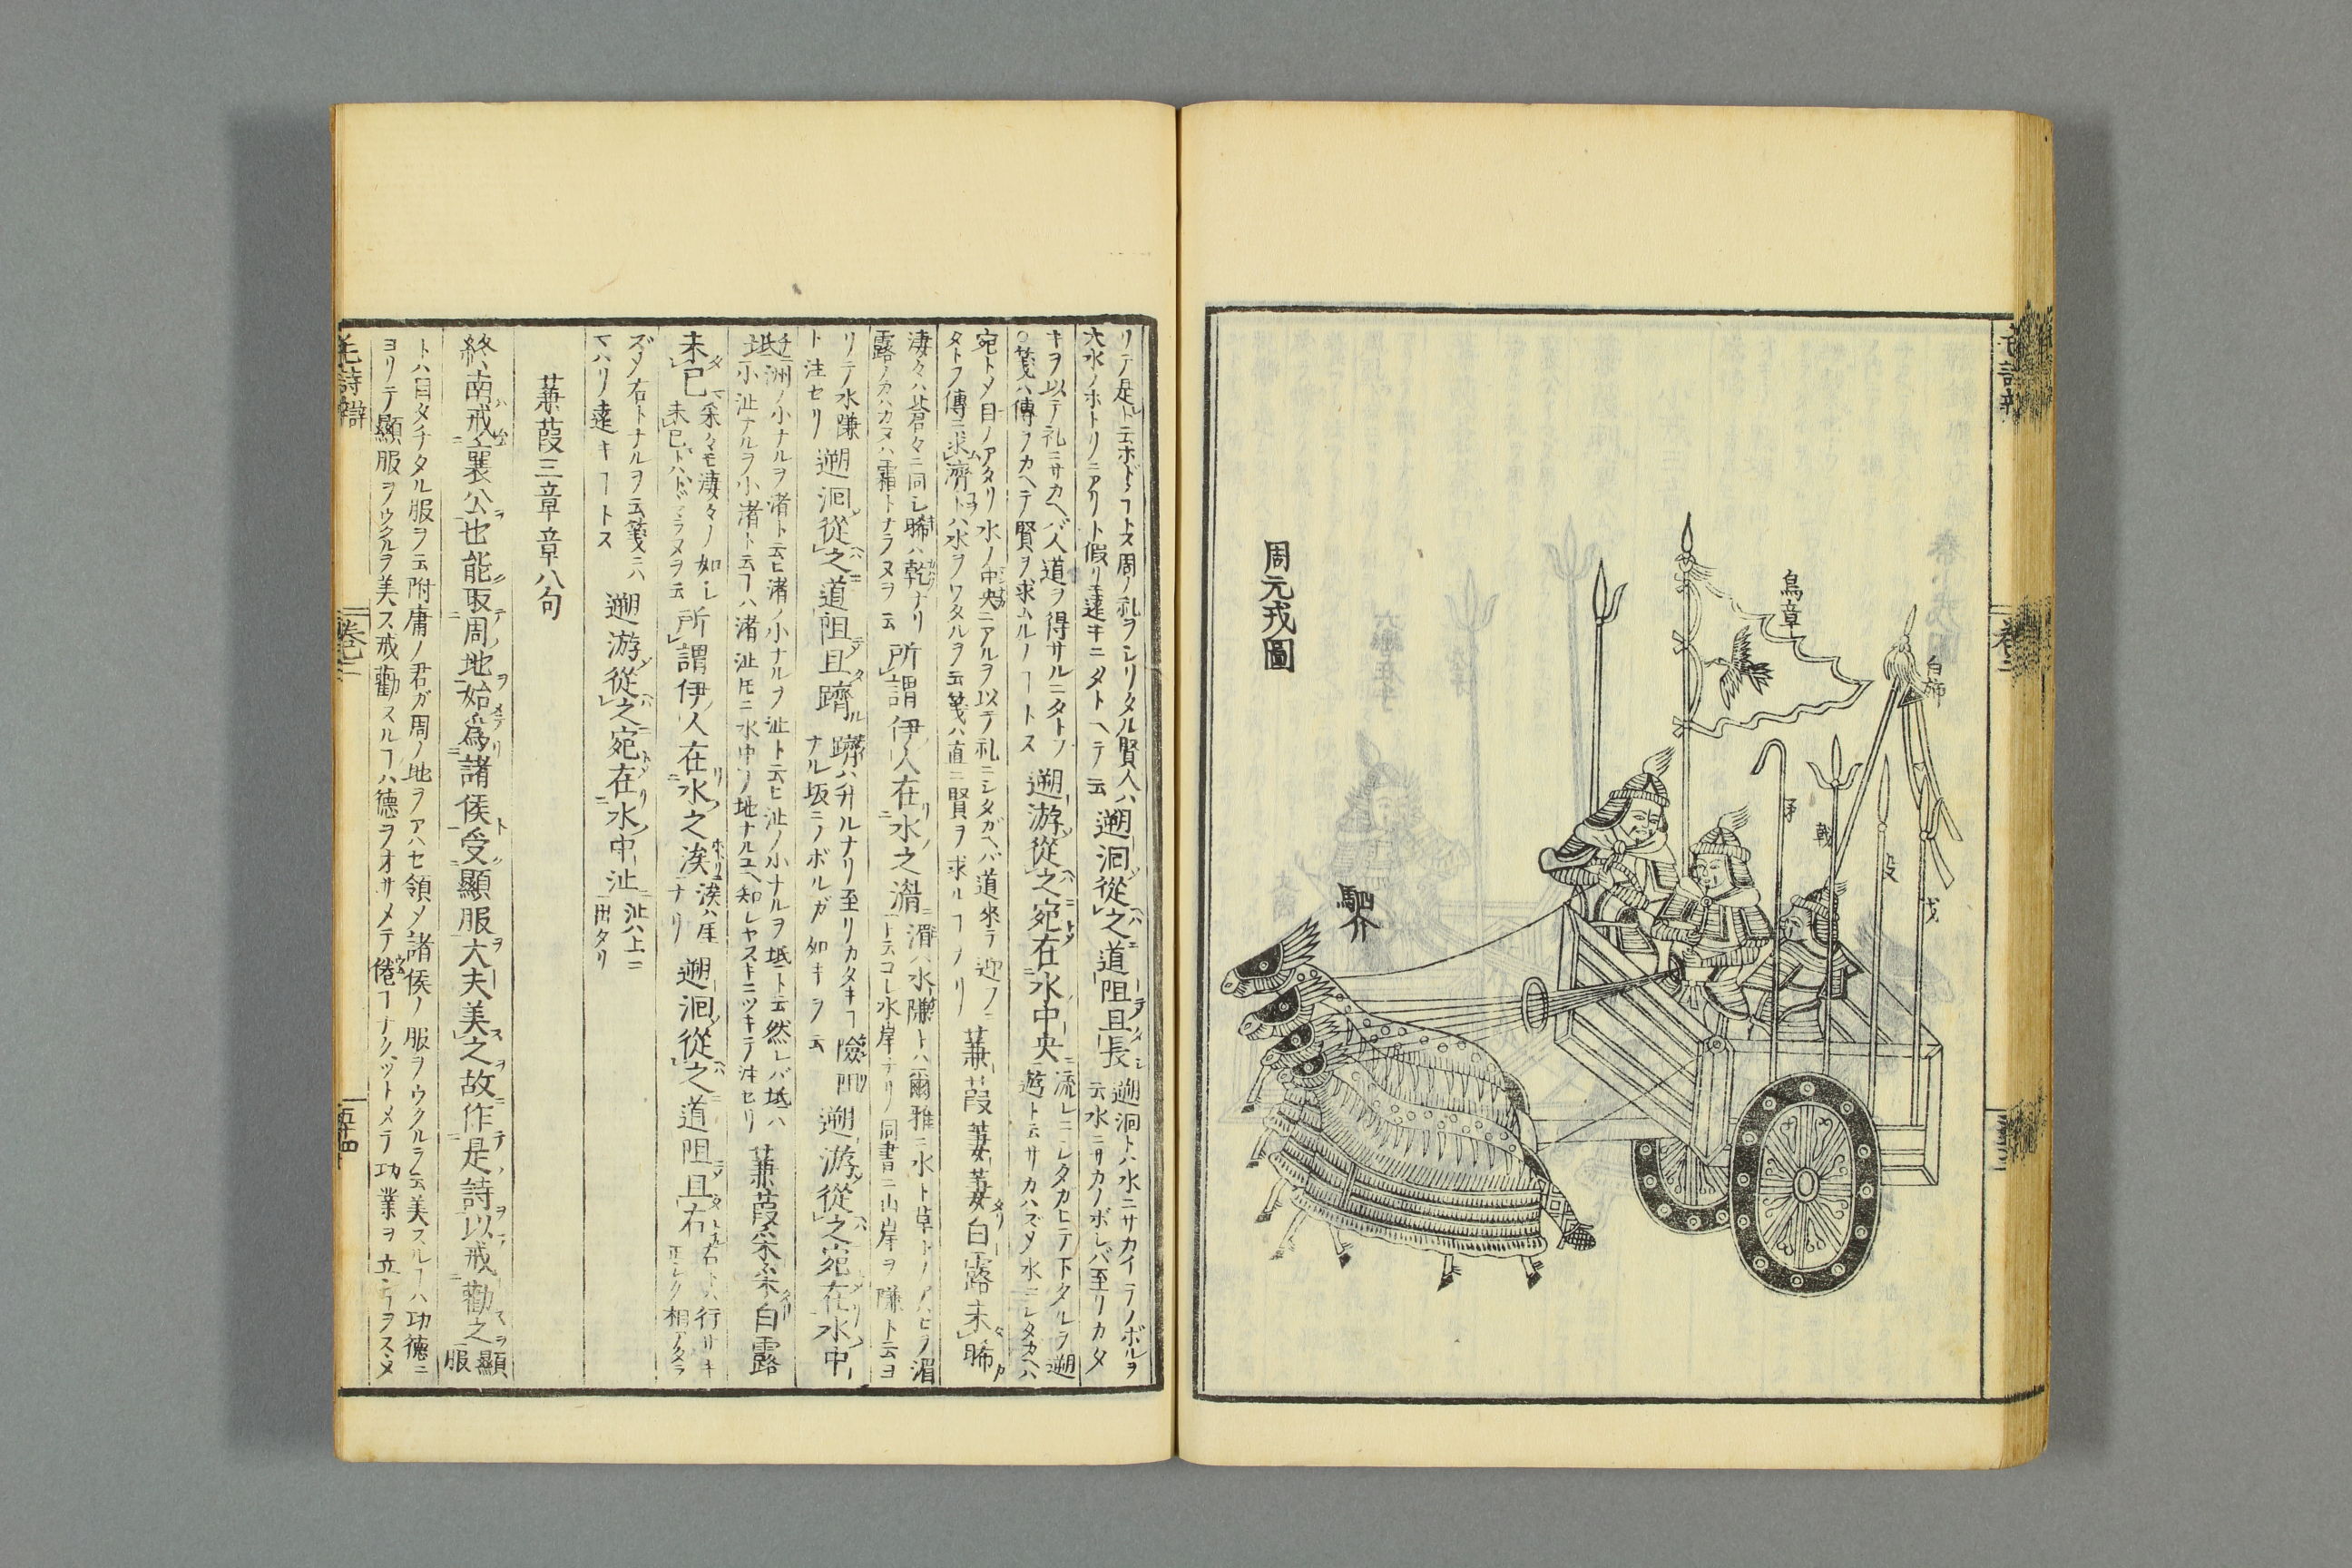 白旆
鳥章
矛
戟
殳
戈
駟介
周元戎圖
リテ是ト云ホドノヿトス周ノ礼ヲシリタル賢人ハ
大水ノホトリニアリト假リ遠キニタトヘテ云
遡洄從之道阻且長
遡洄トハ水ニサカイテノボルヲ
云水ニサカノボレバ至リカタ
キヲ以テ礼ニサカヘバ人道ヲ得サルニタトフ
○箋ハ傳ヲカヘテ賢ヲ求ムルノヿトス
遡游從之宛在水中央
流レニシタカヒテ下タルヲ遡
遊ト云サカハズメ水ニシタカヘハ
宛トメ目ノアタリ水ノ中央ニアルヲ以テ礼ニシタガヘバ道來テ迎フニ
タトフ傳ニ求濟トハ水ヲワタルヲ云箋ハ直ニ賢ヲ求ルヿナリ
蒹葭萋萋白露未晞
淒々ハ蒼々ニ同シ晞ハ乾ナリ
露ノカハカヌハ霜トナラヌヲ云
所謂伊人在水之湄
湄ハ水隒トハ爾雅ニ水ト草トノアヒヲ湄
ト云コレ水岸ナリ同書ニ山岸ヲ隒ト云ヨ
リテ水隒
ト注セリ
遡洄從之道阻且躋
躋ハ升ルナリ至リカタキヿ險阻
ナル坂ニノボルガ如キヲ云
遡游從之宛在水中
坻
洲ノ小ナルヲ渚ト云ヒ渚ノ小ナルヲ沚ト云ヒ沚ノ小ナルヲ坻ト云然レバ坻ハ
小沚ナルヲ小渚ト云フハ渚沚圧ニ水中ノ地ナルユヘ知レヤスキニツキテ注セリ
蒹葭采采白露
未已
采々モ淒々ノ如シ
未已トハトドマラヌヲ云
所謂伊人在水之涘
涘ハ厓
ナリ
遡洄從之道阻且右
右トハ行サキ
正シク相アタラ
ズメ右トナルヲ云箋ニハ
マハリ遠キヿトス
遡游從之宛在水中沚
沚ハ上ニ
出タリ
蒹葭三章章八句
終南戒襄公也能取周地始爲諸侯受顯服大夫美之故作是詩以戒勸之
顯
服
トハ目タチタル服ヲ云附庸ノ君ガ周ノ地ヲアハセ領メ諸侯ノ服ヲウクルヲ云美スルヿハ功德ニ
ヨリテ顯服ヲウクルヲ美ス戒勸スルヿハ德ヲオサメテ倦ヿナクツトメテ功業ヲ立ヿヲスヽメ
毛詩辯
卷之二
五十四